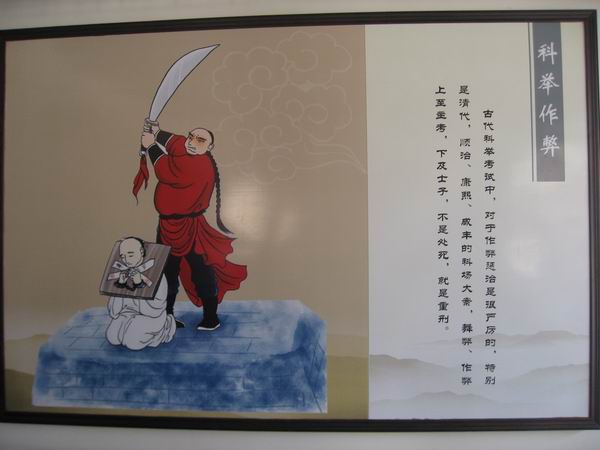 科举作弊
古代科举考试中，对于作弊惩治是很严厉的，特别
是清代，顺治、康熙、咸丰的科场大案，舞弊、作弊
上至主考，下及士子，不是处死，就是重刑。